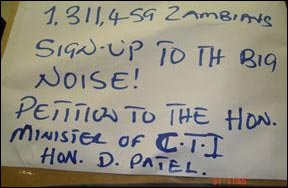 1,311,459 ZAMBIANS
SIGN-UP TO TH BIG
NOISE!
PETITION TO THE HON.
MINISTER OF C.T.I
HON. D. PATEL.